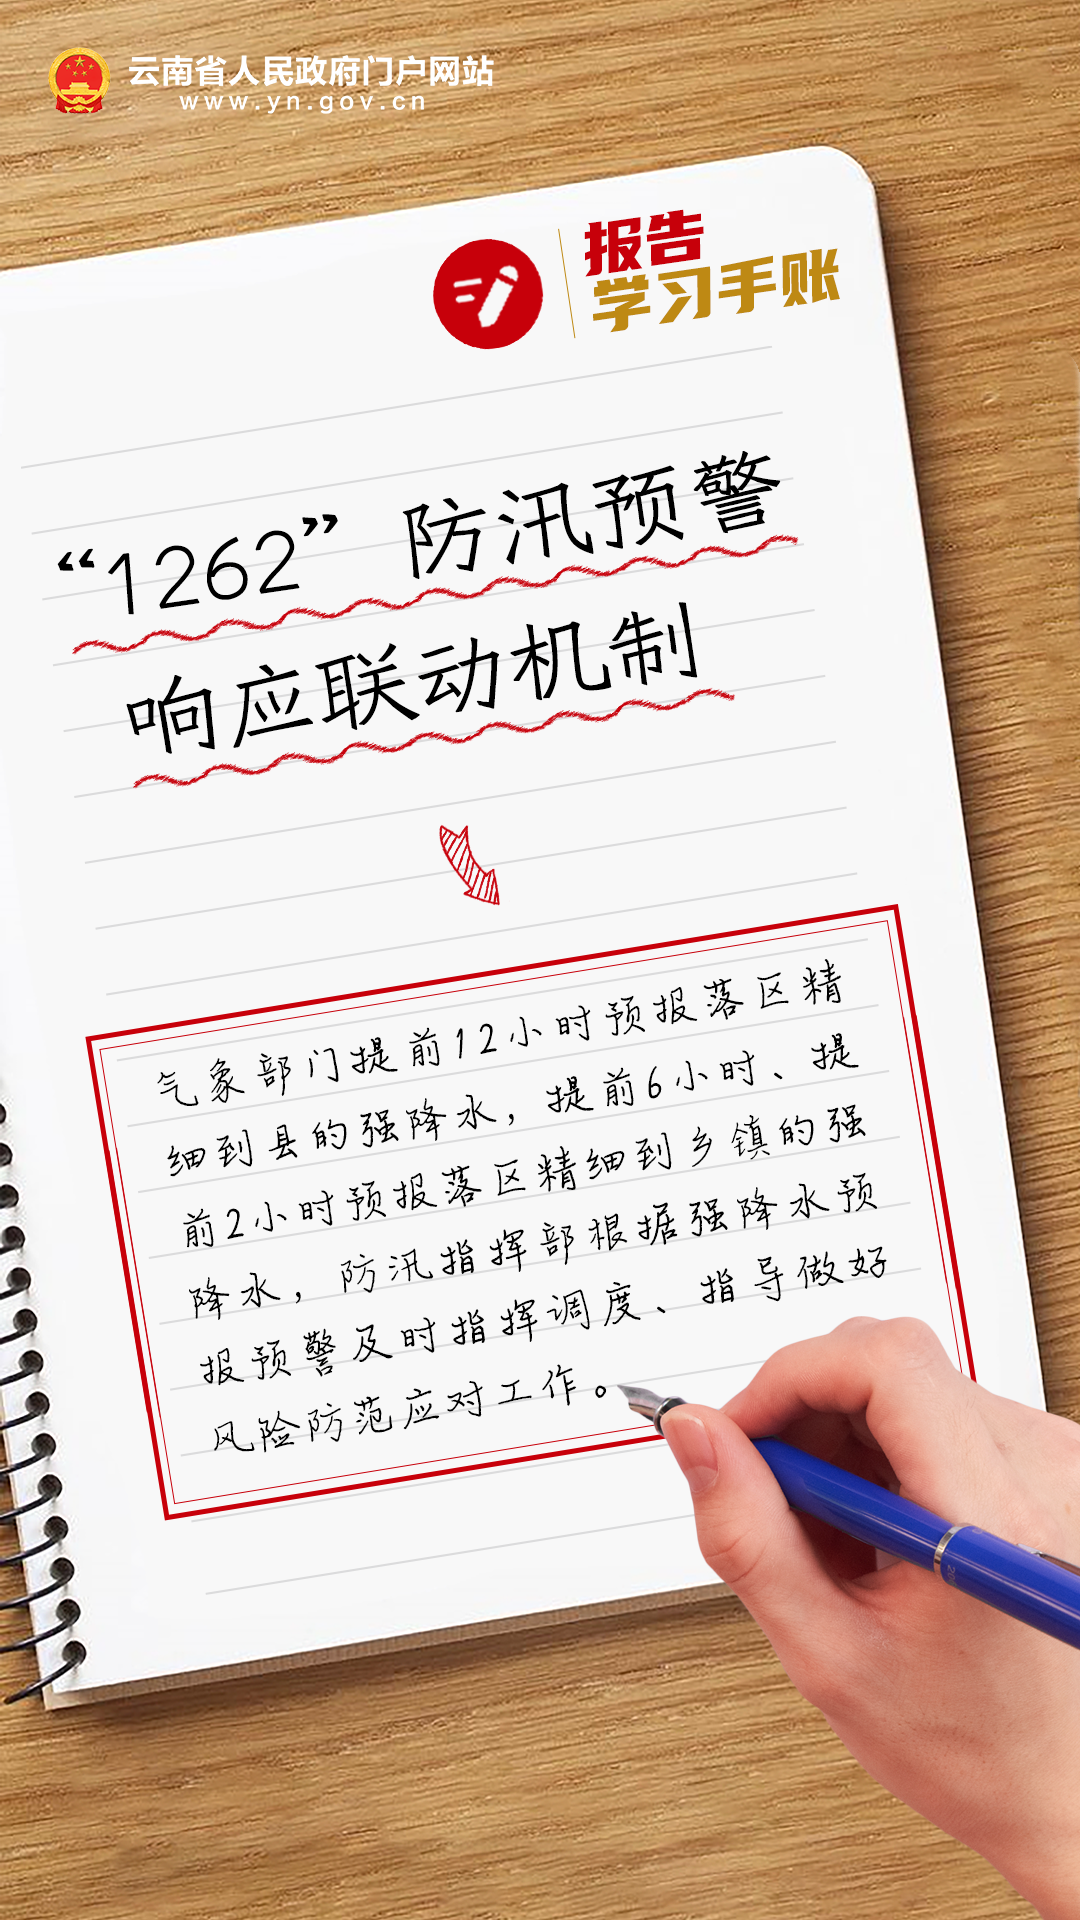 云南省人民政府门户网站
www.yn.gov.cn
报告
学习手账
“1262”防汛预警
响应联动机制
气象部门提前12小时预报落区精
细到县的强降水，提前6小时、提
前2小时预报落区精细到乡镇的强
降水，防汛指挥部根据强降水预
报预警及时指挥调度、指导做好
风险防范应对工作。